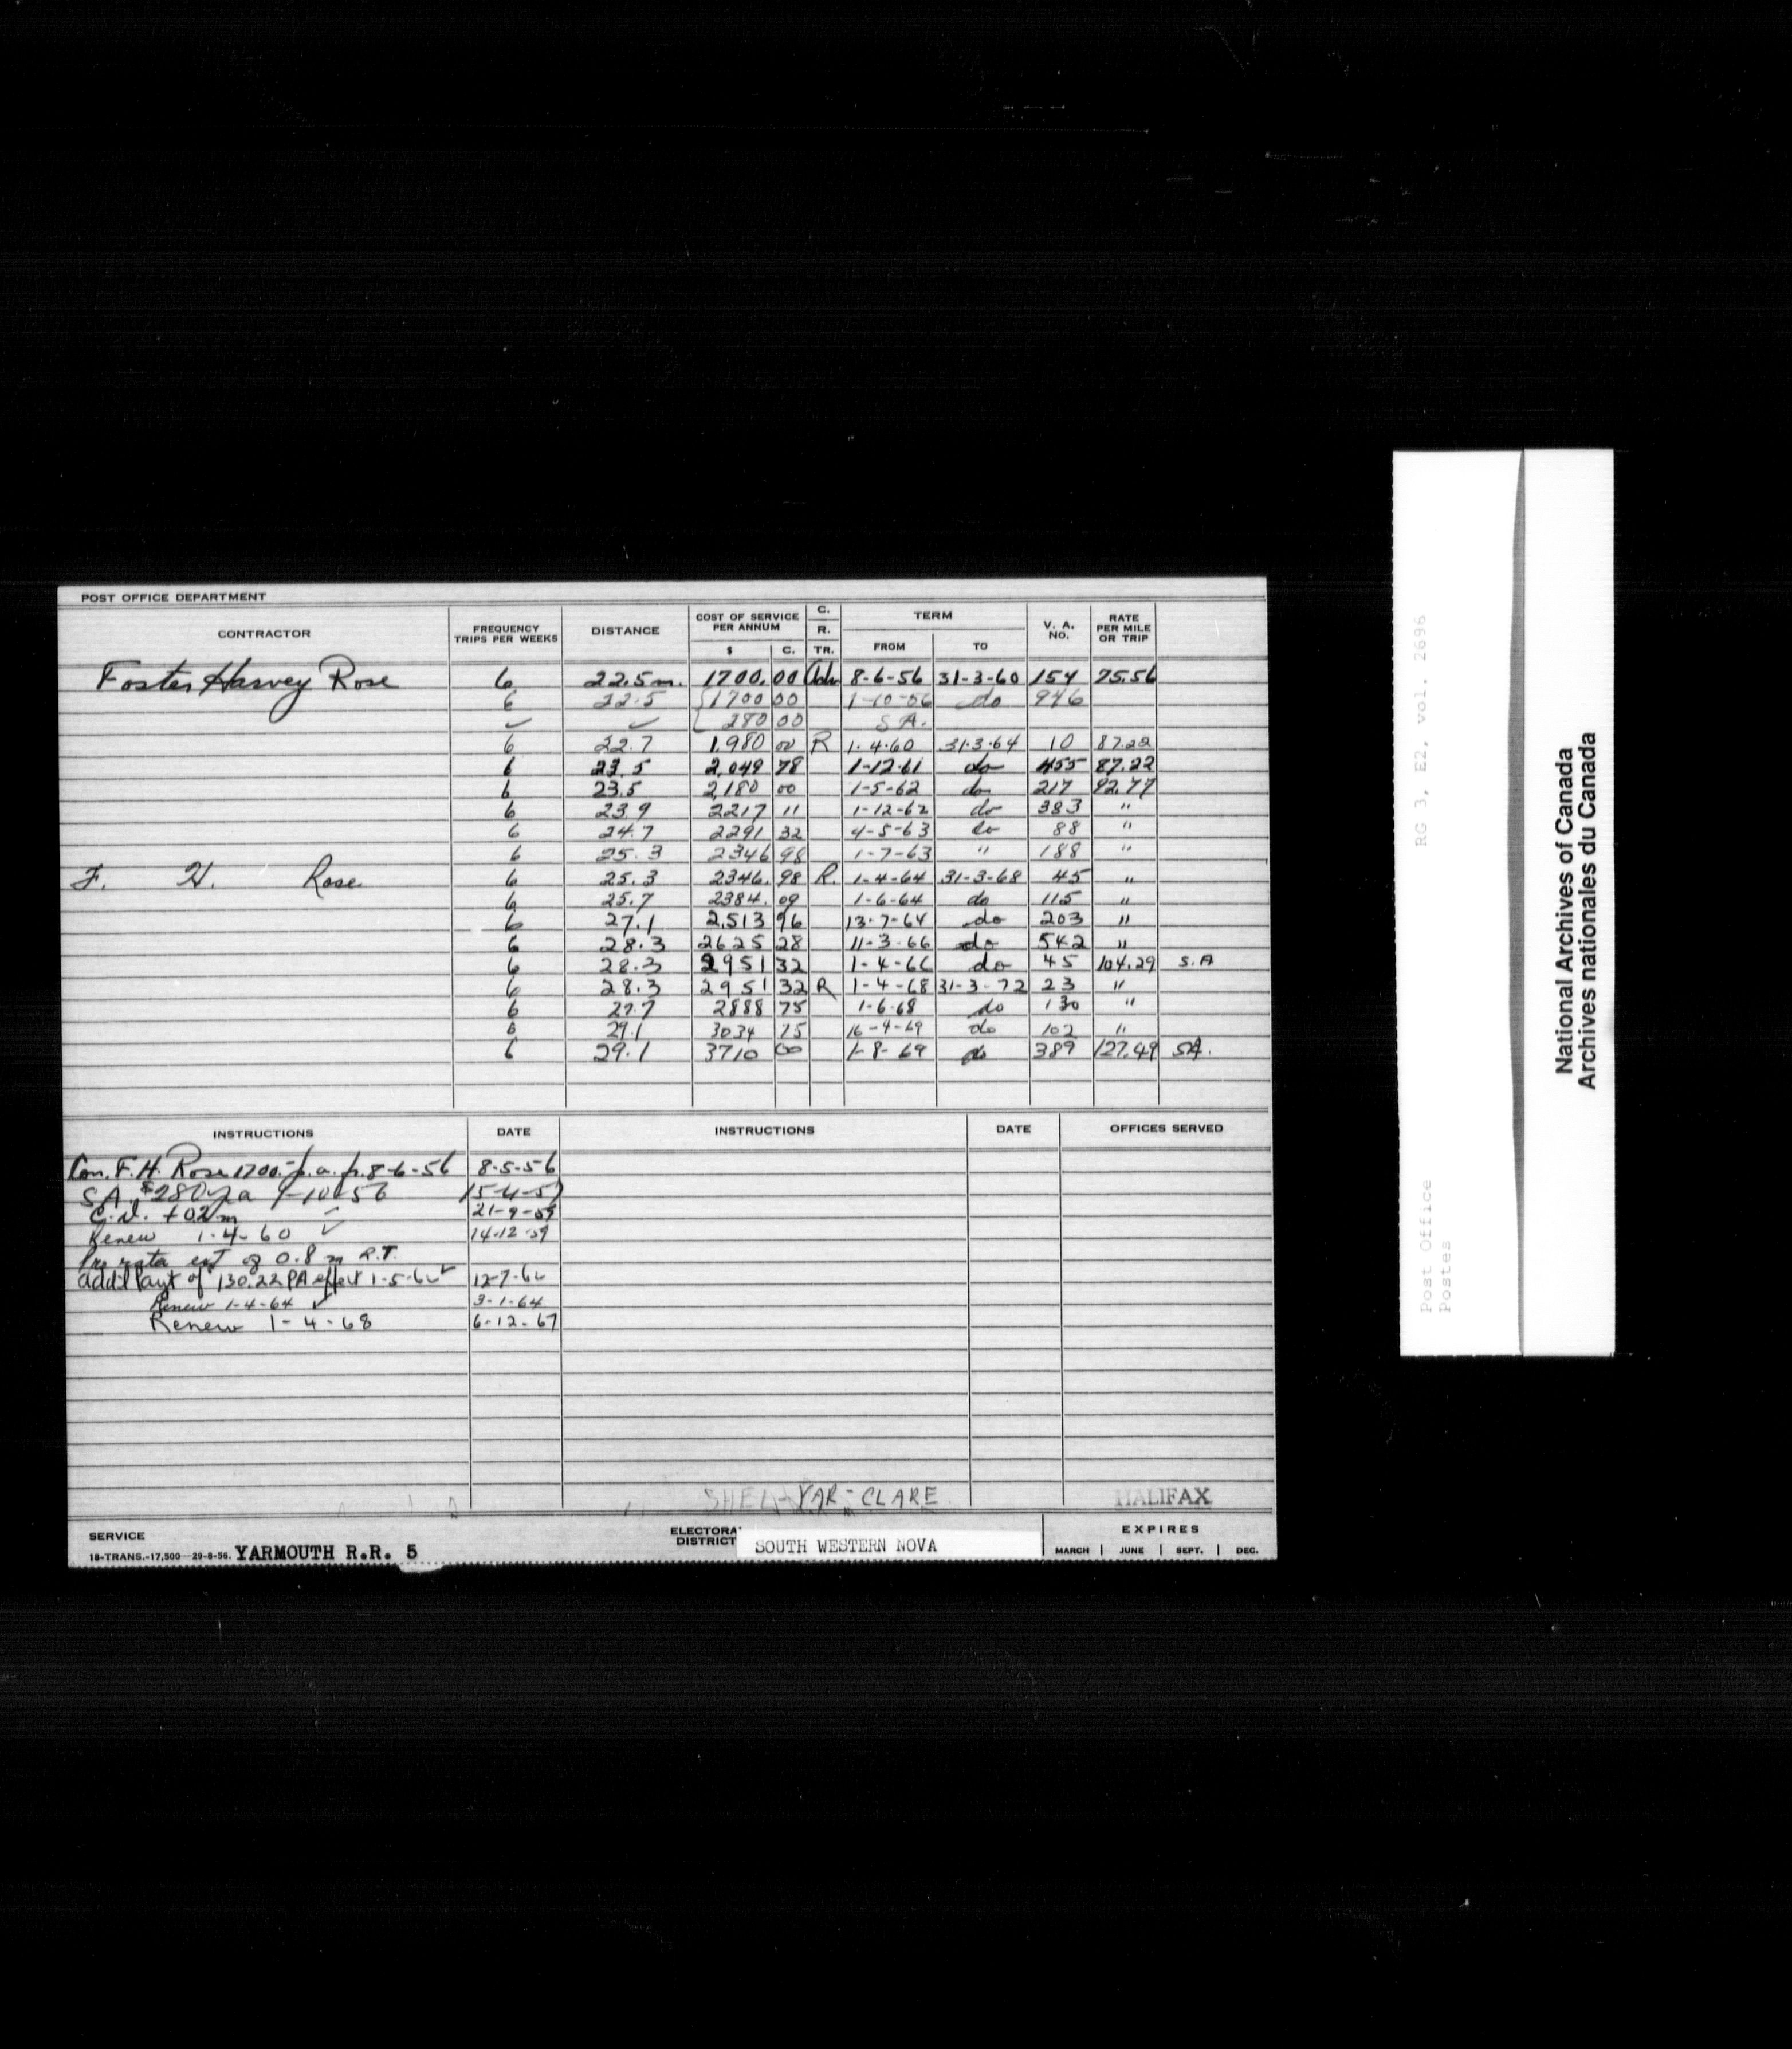 POST OFFICE DEPARTMENT
CONTRACTOR FREQUENCY TRIPS PER WEEKS DISTANCE COST OF SERVICE PER ANNUM $ C. C. R. TR. TERM FROM TO V. A. NO. RATE PER MILE OR TRIP
Foster Harvey Rose 6 22.5 m. 1700.00 8-6-56 31-3-60 154 75.56
6 22.5 1700 00 1-10-56 do 946
✓ ✓ 280 00 S.A.
6 22.7 1,980 00 R 1.4.60 31.3.64 10 87.22
6 23.5 2,049 78 1-12-61 do 455 87.22
6 23.5 2,180 00 1-5-62 do 217 92.77
6 23.9 2217 11 1-12-62 do 383 "
6 24.7 2291 32 4-5-63 do 88 "
6 25.3 2346 98 1-7-63 " 188 "
F. H. Rose 6 25.3 2346.98 R. 1-4-64 31-3-68 45 "
6 25.7 2384.09 1-6-64 do 115 "
6 27.1 2,513 96 13-7-64 do 203 "
6 28.3 2625 28 11-3-66 do 542 "
6 28.3 2951 32 1-4-66 do 45 104.29 S.A
6 28.3 2951 32 R 1-4-68 31-3-72 23 "
6 27.7 2888 75 1-6-68 do 130 "
6 29.1 3034 75 16-4-69 do 102 "
6 29.1 3710 00 1-8-69 do 389 127.49 SA.
INSTRUCTIONS DATE INSTRUCTIONS DATE OFFICES SERVED
Con. F. H. Rose 1700.- p.a. fr. 8-6-56 8-5-56
SA, $280 pa 1-10-56 15-4-57
C.D. + 02 m 21-9-59
Renew 1-4-60 ✓ 14-12-59
Pro rata ext of 0.8 m R.T.
Add'l Payt of 130.22 PA effect 1-5-62 ✓ 12-7-62
Renew 1-4-64 ✓ 3-1-64
Renew 1-4-68 6-12-67
SHEL-YAR-CLARE HALIFAX
SERVICE
18-TRANS.-17,500-29-8-56. YARMOUTH R.R. 5
ELECTORA DISTRICT SOUTH WESTERN NOVA
EXPIRES
MARCH | JUNE | SEPT. | DEC.
RG 3, E2, vol. 2696
Post Office
Postes
National Archives of Canada
Archives nationales du Canada